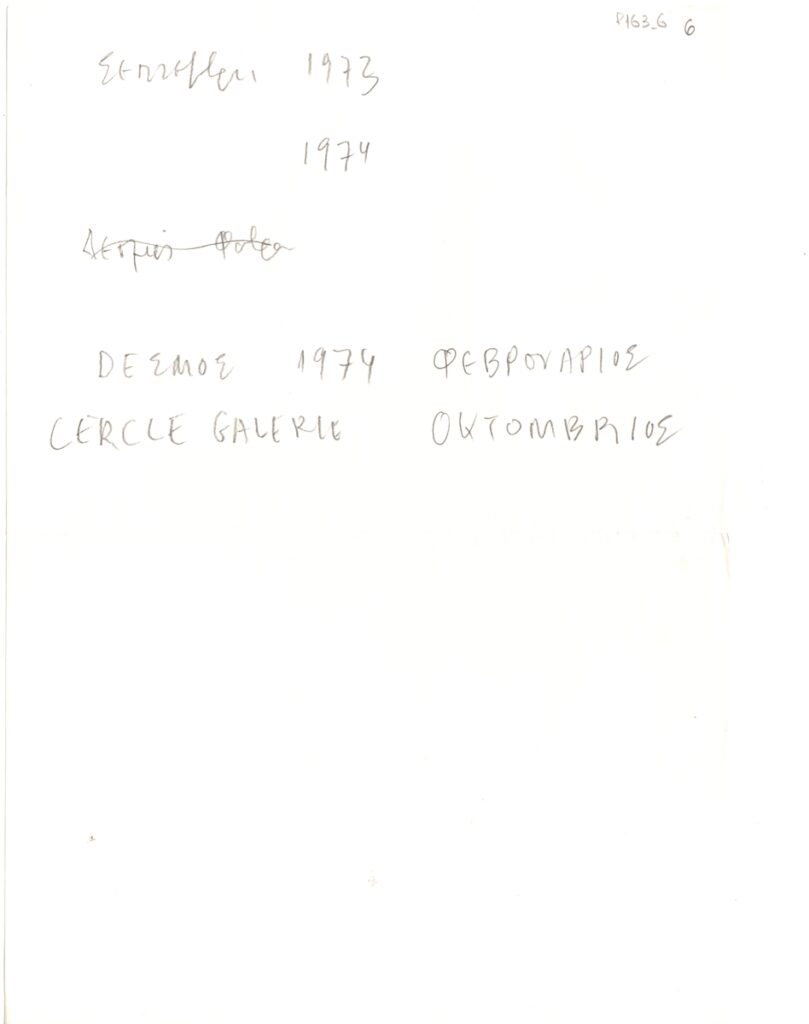 P163_6 6
Σεπτέμβρη 1973
1974
DΕΣΜΟΣ 1974 ΦΕΒΡΟΥΑΡΙΟΣ
CERCLE GALERIE ΟΚΤΟΜΒΡΙΟΣ